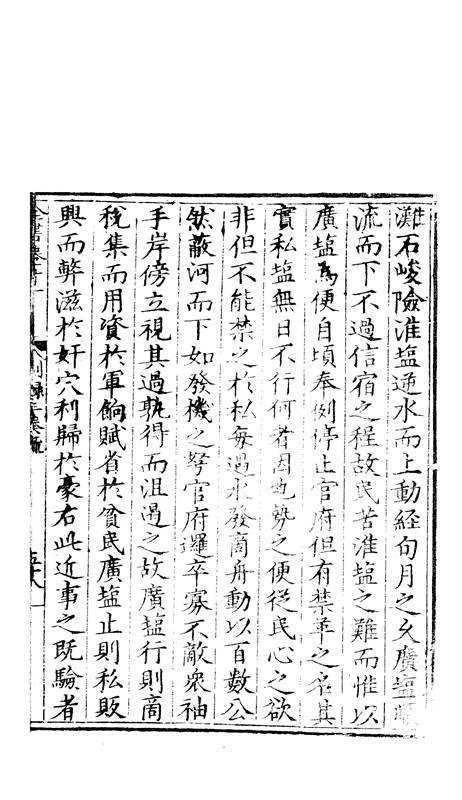 灘石峻險淮塩逆水而上動経旬月之久廣塩順
流而下不過信宿之程故民苦淮塩之難而惟以
廣塩爲便自頃奉例停止官府但有禁革之名其
實私塩無日不行何者因地勢之便從民心之欲
非但不能禁之於私每遇水發商舟動以百數公
然蔽河而下如發機之弩官府邏卒寡不敵衆袖
手岸傍立視其過孰得而沮遏之故廣塩行則商
稅集而用資於軍餉賦省於貧民廣塩止則私販
興而弊滋於奸宄利歸於豪右此近事之既驗者
全書卷十一
五十八